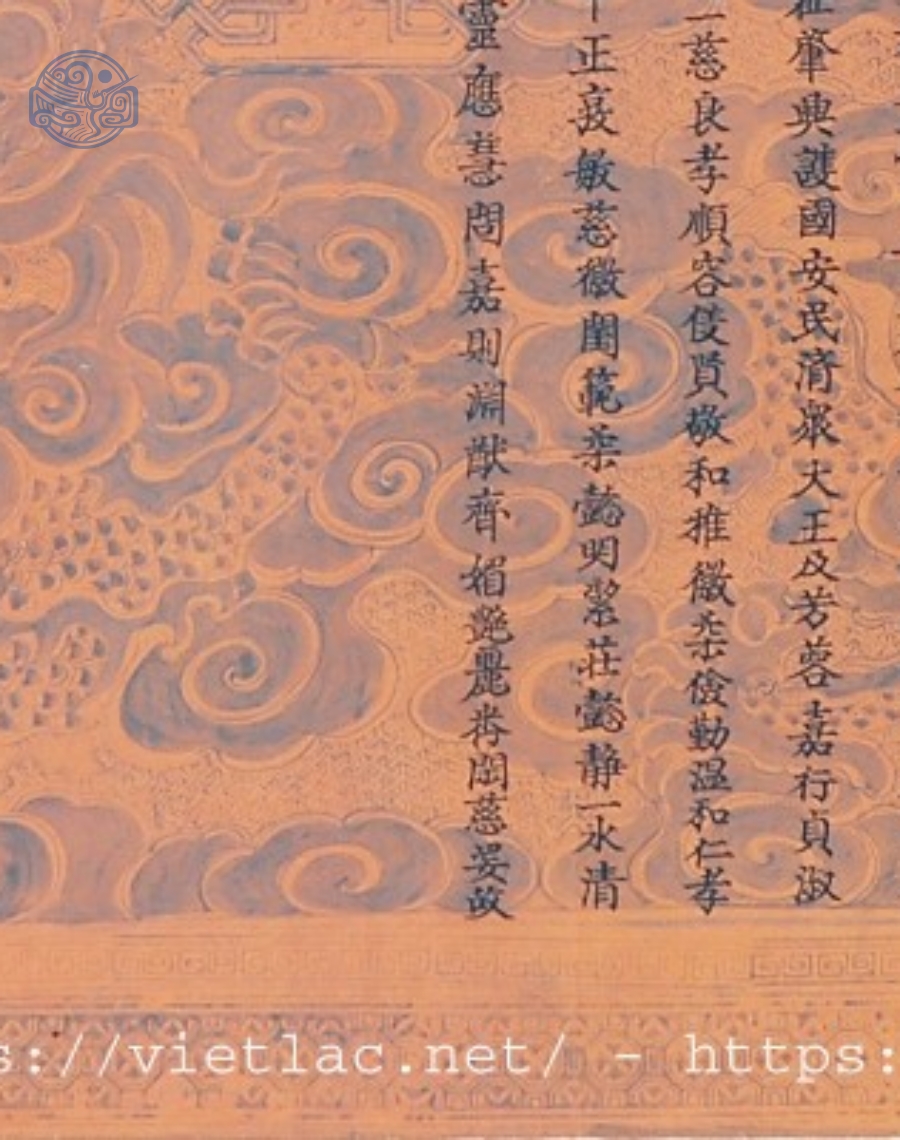 肇典護國安民濟衆大王及芳蓉嘉行貞淑
一慈良孝順容僾賢敬和推徽柔儉勤溫和仁孝
正哀敏慈徽閨範柔懿明潔莊懿静一氷清
靈應慧問嘉則淵猷齊媚艷麗耑閫慈姿敌
s://vietlac.net/ - https: